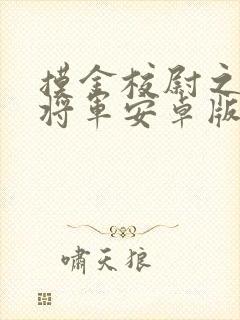 摸金校尉之
将军安卓版
啸天狼